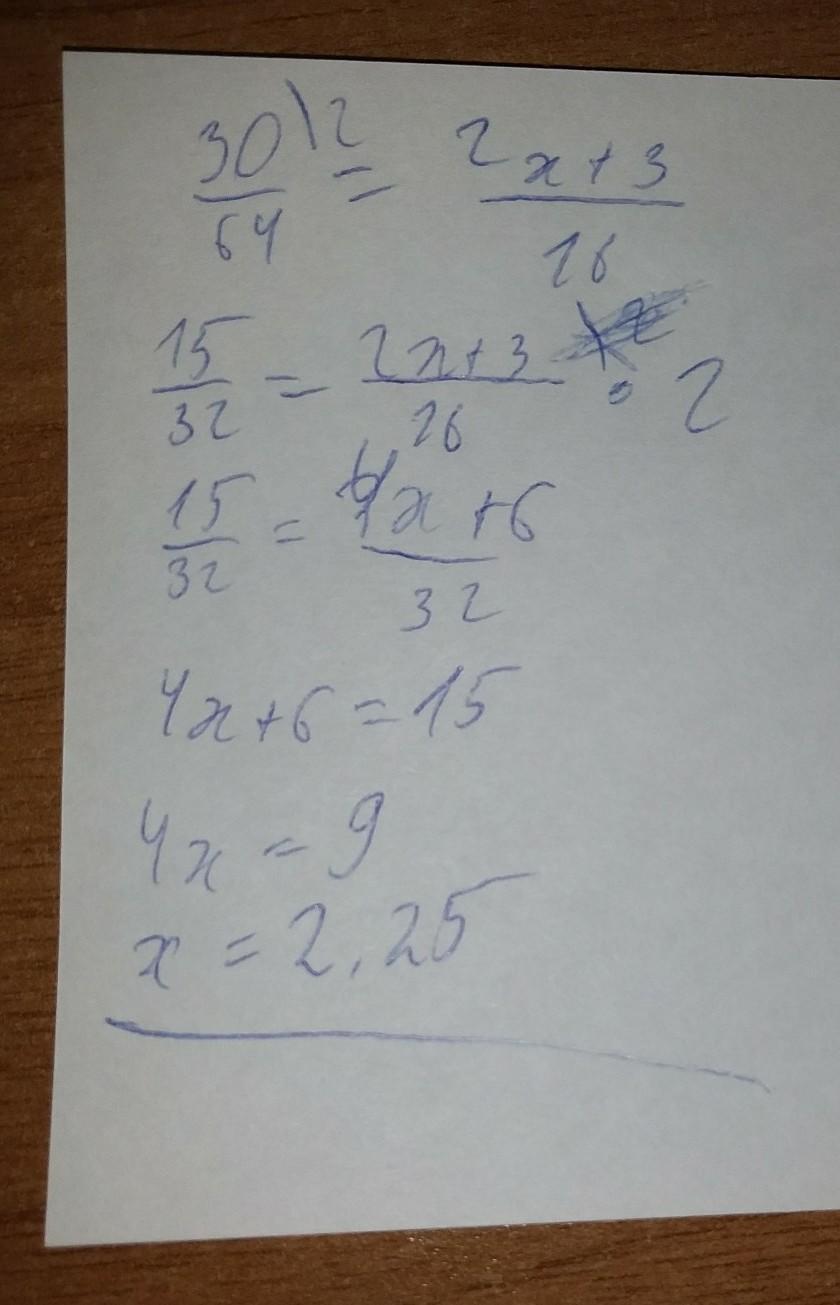 30\2 / 64 = 2x+3 / 16
15/32 = 2x+3 / 16 · 2
15/32 = 4x+6 / 32
4x+6=15
4x = 9
x = 2,25